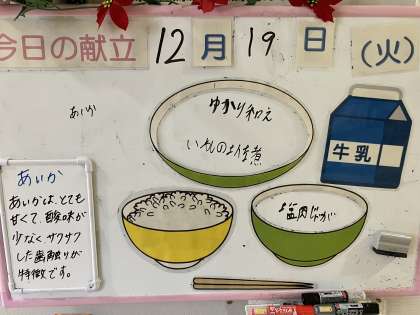 今日の献立 12月19日（火）
あいか
ゆかり和え
いわしの生姜煮
牛乳
塩肉じゃが
あいか
あいかは、とても
甘くて、酸味が
少なく サクサク
した歯触りが
特徴です。